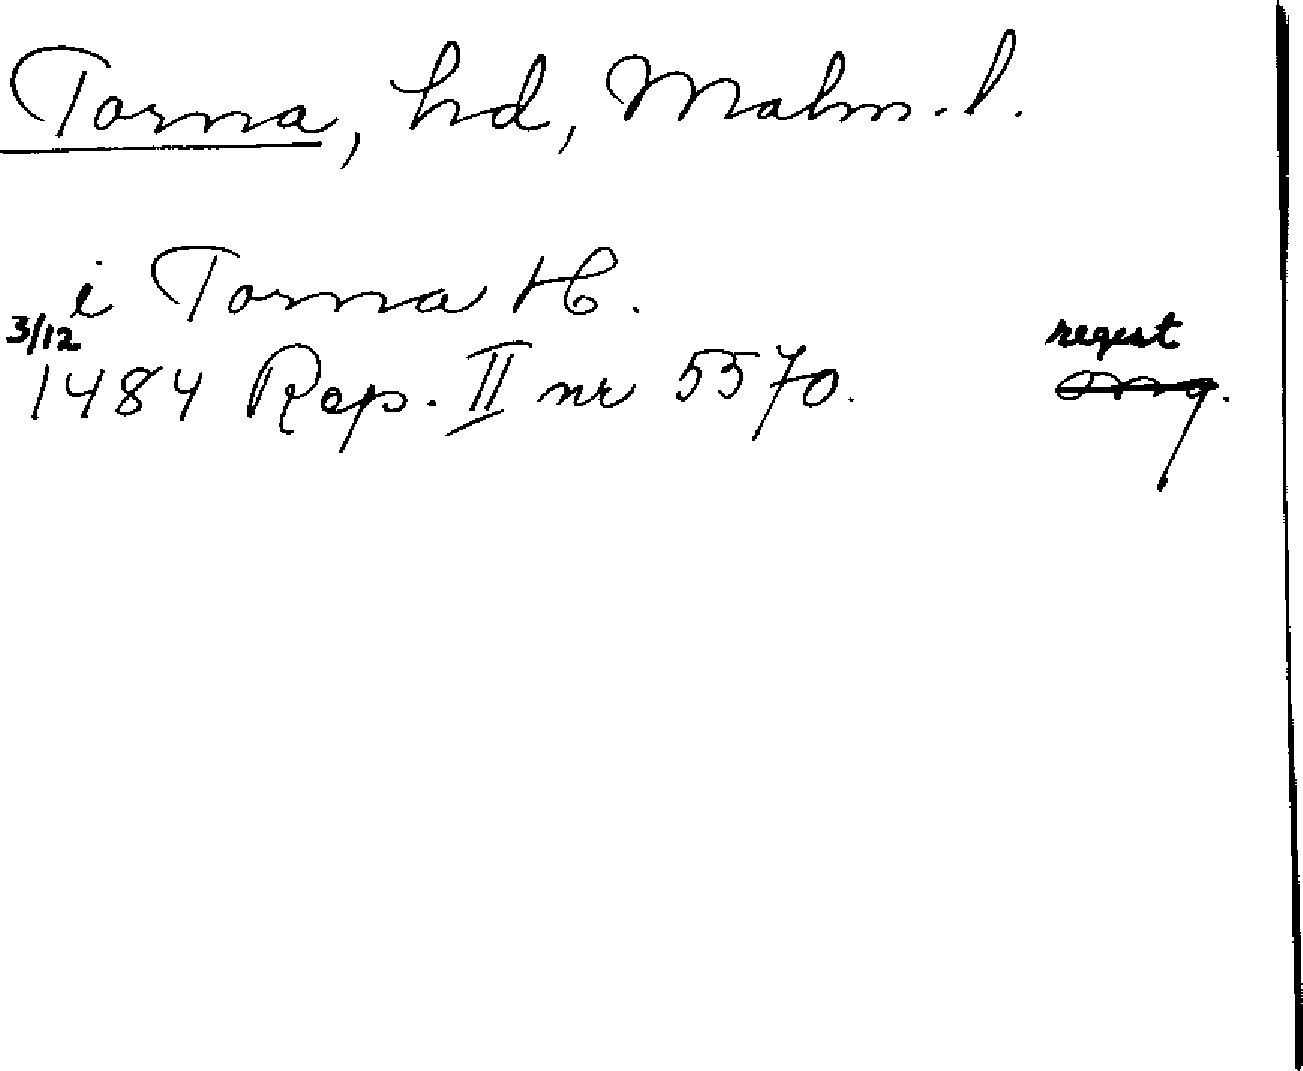 Torna, hd, Malm. l.
i Torna H.
3/12
1484 Rep. II nr 5570.
regest
omg.